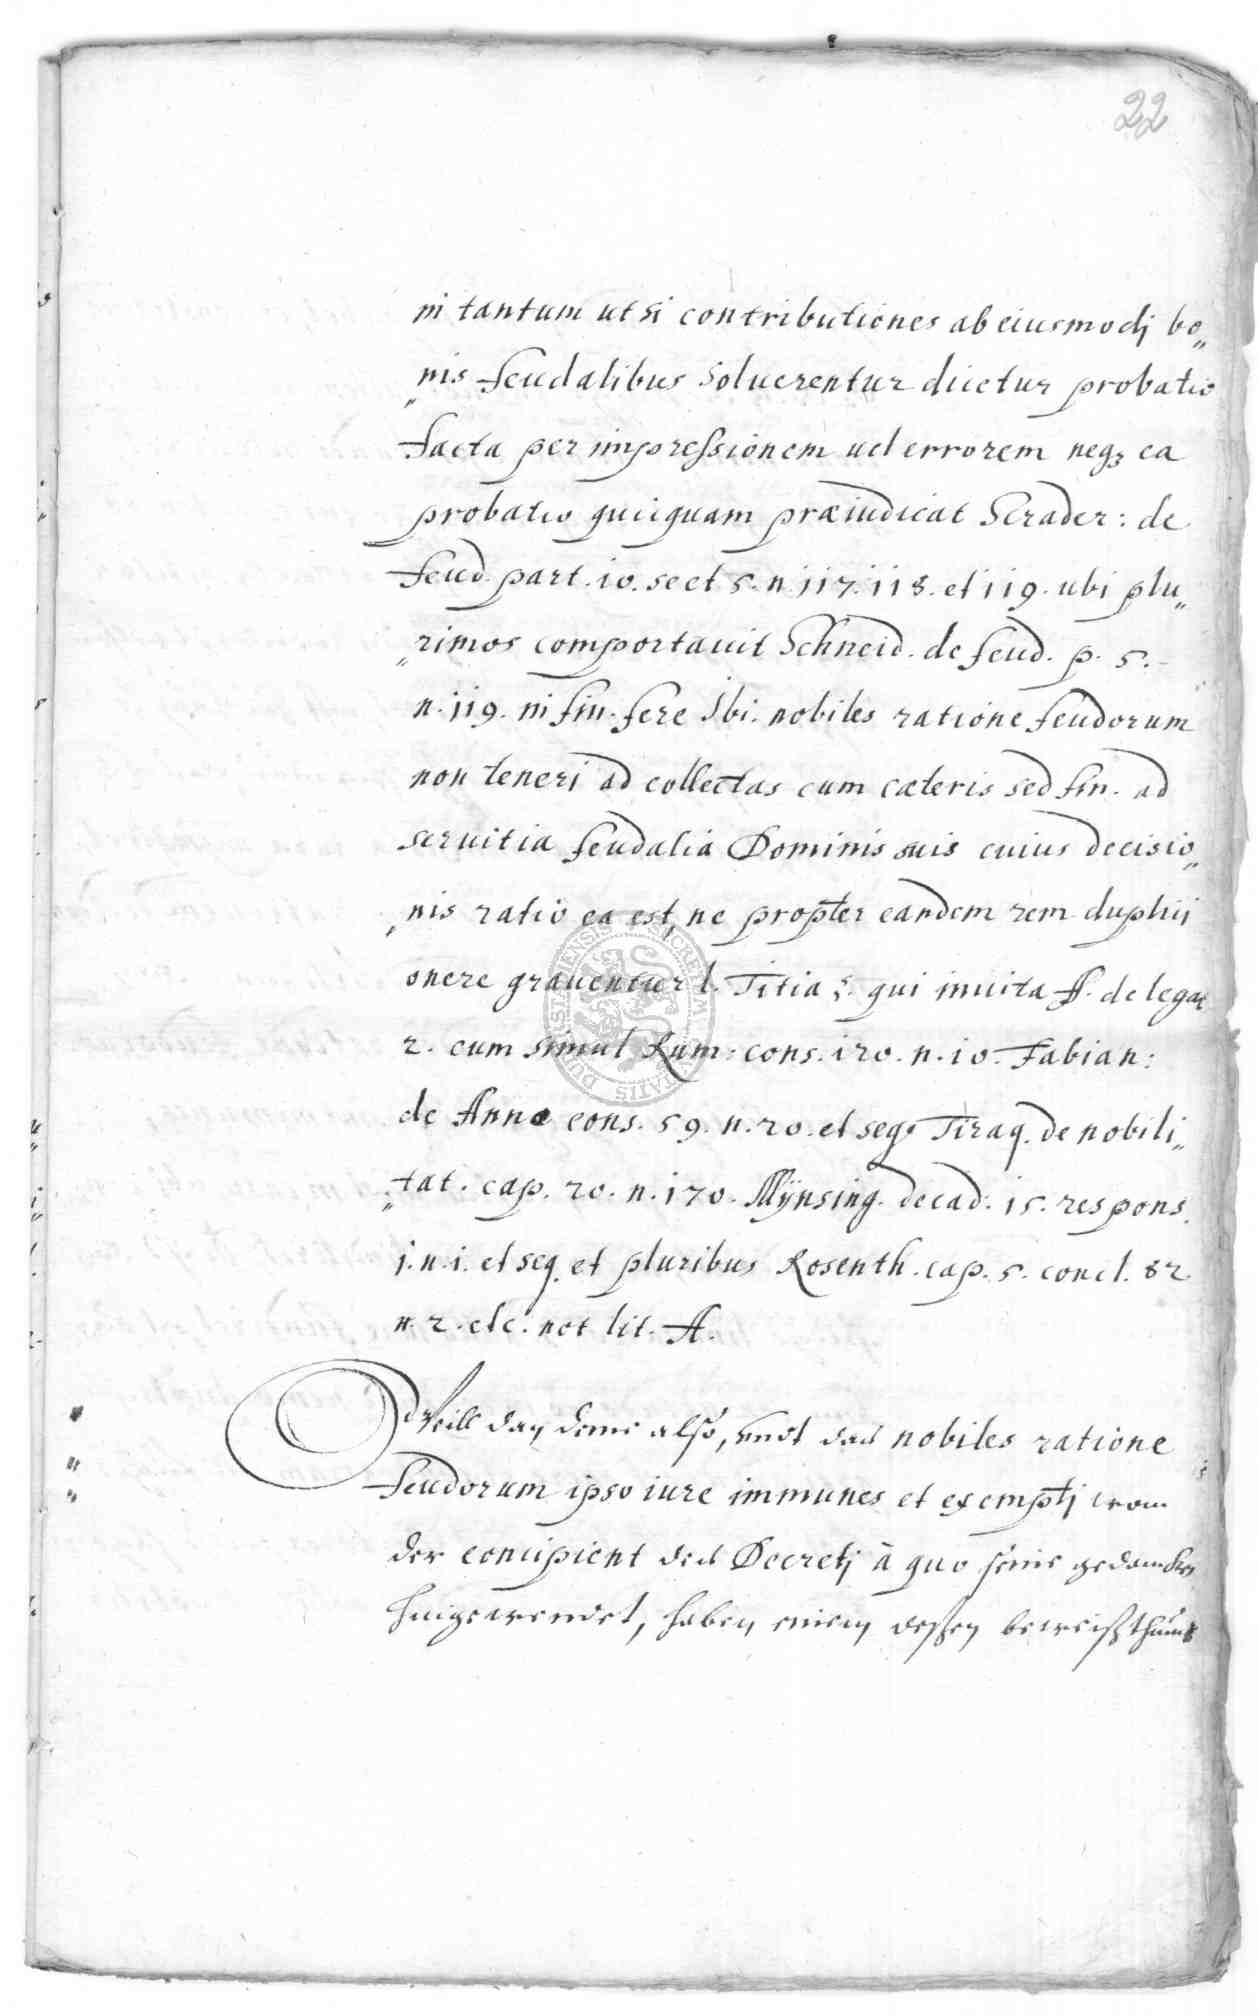 22
in tantum ut si contributiones ab eiusmodj bo„
„nis feudalibus soluerentur dicetur probatio
facta per impressionem uel errorem neqꝫ ea
probatio quicquam præiudicat Scrader: de
feud. part. 10. sect 5. n. 117. 118. et 119. ubi plu„
„rimos comportauit Schneid. de feud. p. 5.
n. 119. in fin. fere Ibi: nobiles ratione feudorum
non teneri ad collectas cum cæteris sed fin. ad
seruitia feudalia Dominis suis cuius decisio„
„nis ratio ea est, ne propter eandem rem duplici
onere grauentur l. Titia §. qui inuita ff. de legat
2. cum simul Rum: cons. 120. n. 10. Fabian:
de Anna cons. 59. n. 20. et seq. Tiraq. de nobili„
„tat. cap. 20. n. 170. Mÿnsing. decad: 15. respons.
j. n. i. et seq. et pluribus Rosenth. cap. 5. concl. 82
n. 2. etc. not lit. A.
Weill dan deme also, undt das nobiles ratione
feudorum ipso iure immunes et exemptj wan
der concipient des Decretj à quo seine gedancken
hingewendet, haben einen deßen beweißthumb